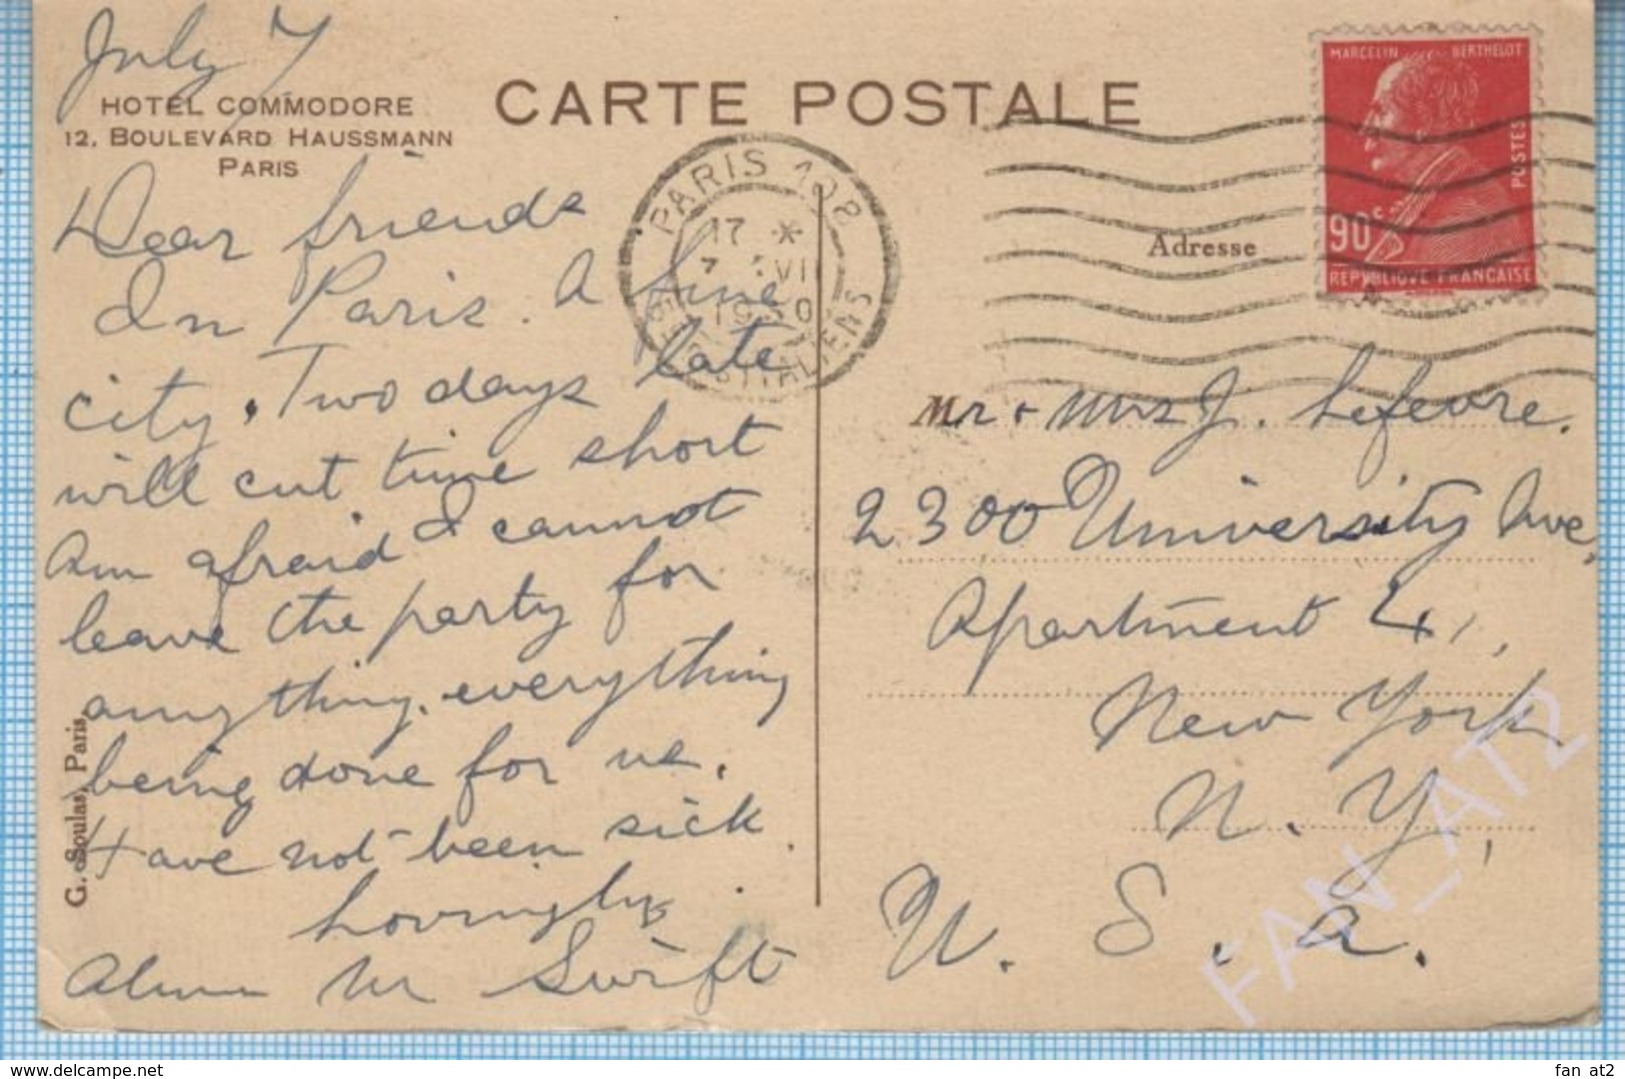 July 7
HOTEL COMMODORE
12, BOULEVARD HAUSSMANN
PARIS
CARTE POSTALE
Dear friends
In Paris. A fine
city. Two days late
will cut time short
Am afraid I cannot
leave the party for
anything. everything
being done for us.
Have not been sick.
Lovingly
M Swift
G. Soulas, Paris
PARIS 108
17 *
VII
MARCELIN BERTHELOT
POSTES
90c
REPUBLIQUE FRANCAISE
Adresse
Mr + Mrs J. Lefevre.
2300 University Ave,
Apartment 41,
New York
N. Y,
U. S. A.
FAN_AT2
fan_at2